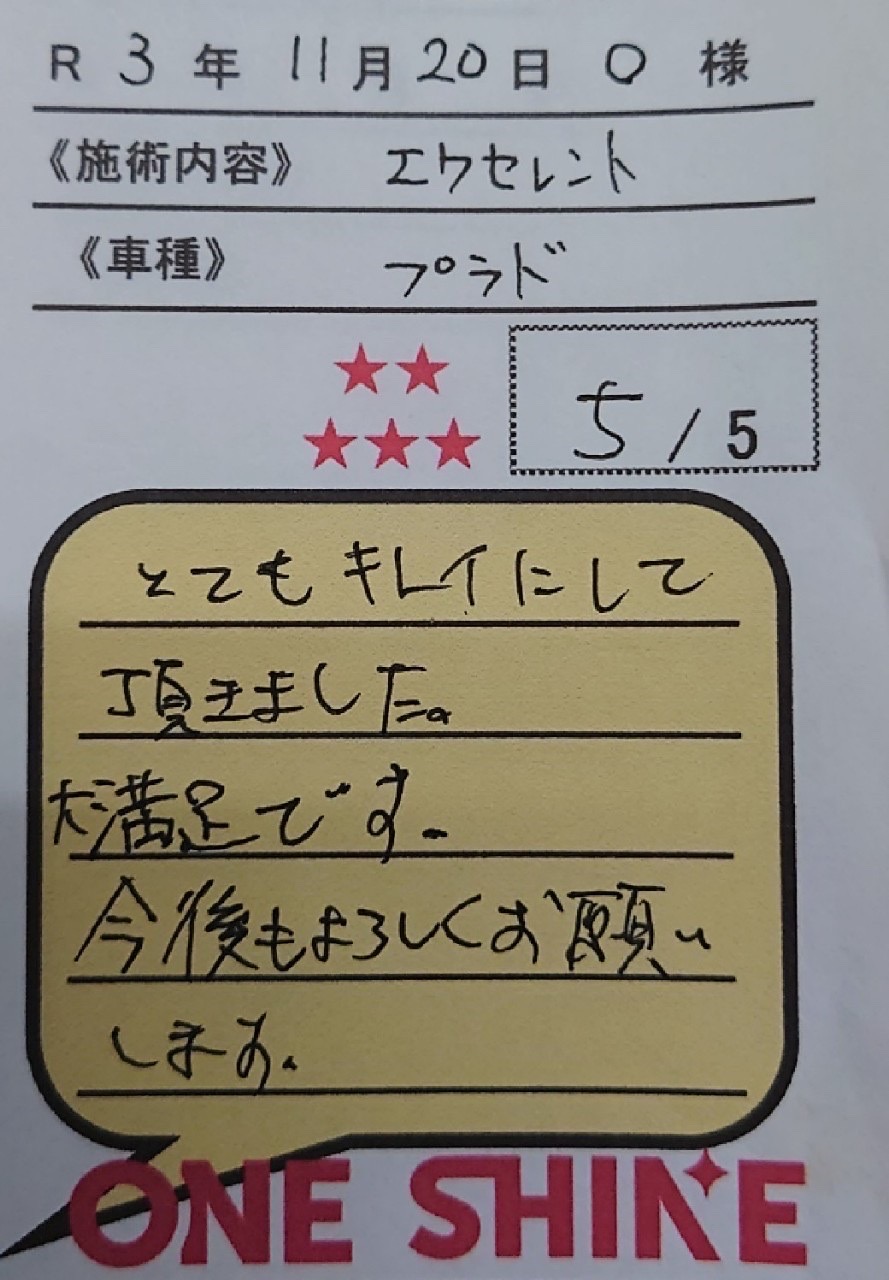 R 3 年 11 月 20 日 O 様
《施術内容》 エクセレント
《車種》 プラド
★★
★★★
5 / 5
とてもキレイにして
頂きました。
大満足です。
今後もよろしくお願い
します。
ONE SHINE